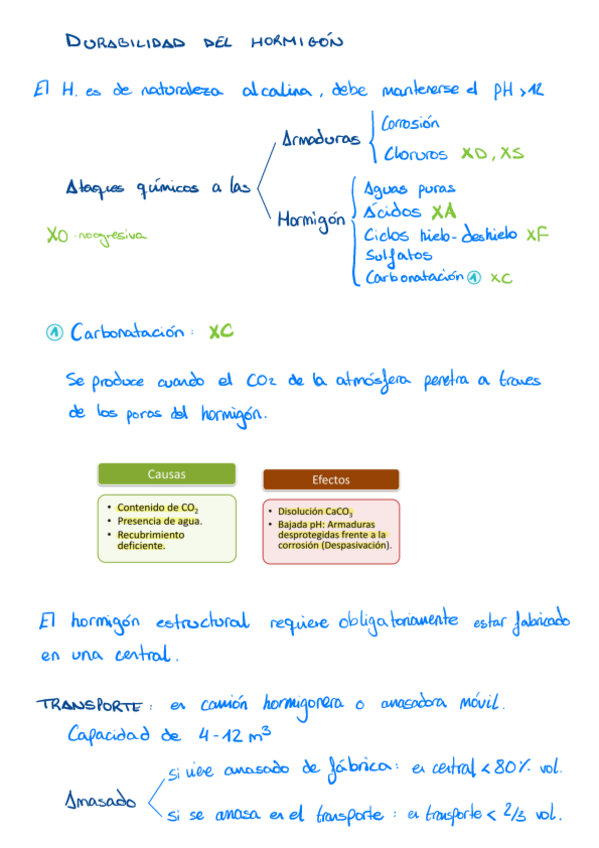 DURABILIDAD DEL HORMIGÓN
El H. es de naturaleza alcalina, debe mantenerse el pH >12
Ataques químicos a las
Armaduras
Corrosión
Cloruros XD, XS
Hormigón
Aguas puras
Ácidos XA
Ciclos hielo-deshielo XF
Sulfatos
Carbonatación ① XC
XO · no agresiva
① Carbonatación: XC
Se produce cuando el CO2 de la atmósfera penetra a traves
de los poros del hormigón.
Causas
• Contenido de CO₂
• Presencia de agua.
• Recubrimiento
deficiente.
Efectos
• Disolución CaCO₃
• Bajada pH: Armaduras
desprotegidas frente a la
corrosión (Despasivación).
El hormigón estructural requiere obligatoriamente estar fabricado
en una central.
TRANSPORTE: en camión hormigonera o amasadora móvil.
Capacidad de 4-12 m³
Amasado
si viene amasado de fábrica: en central < 80% vol.
si se amasa en el transporte: en transporte < 2/3 vol.